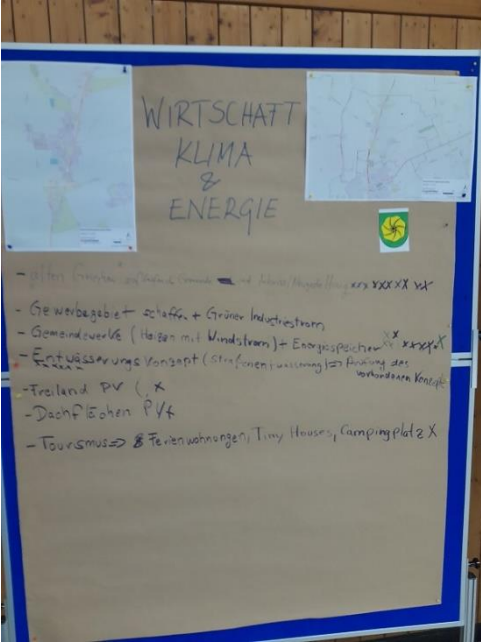 WIRTSCHAFT
KLIMA
&
ENERGIE
- Gewerbegebiet schaffen + Grüner Industriestrom
- Gemeindewerke (Heizen mit Windstrom) + Energiespeicher xx xxxx x
- Entwässerungskonzept (Straßenentwässerung) => Prüfung des
vorhandenen Konzepts
- Freiland PV x
- Dachflächen PV x
- Tourismus => Ferienwohnungen, Tiny Houses, Campingplatz X